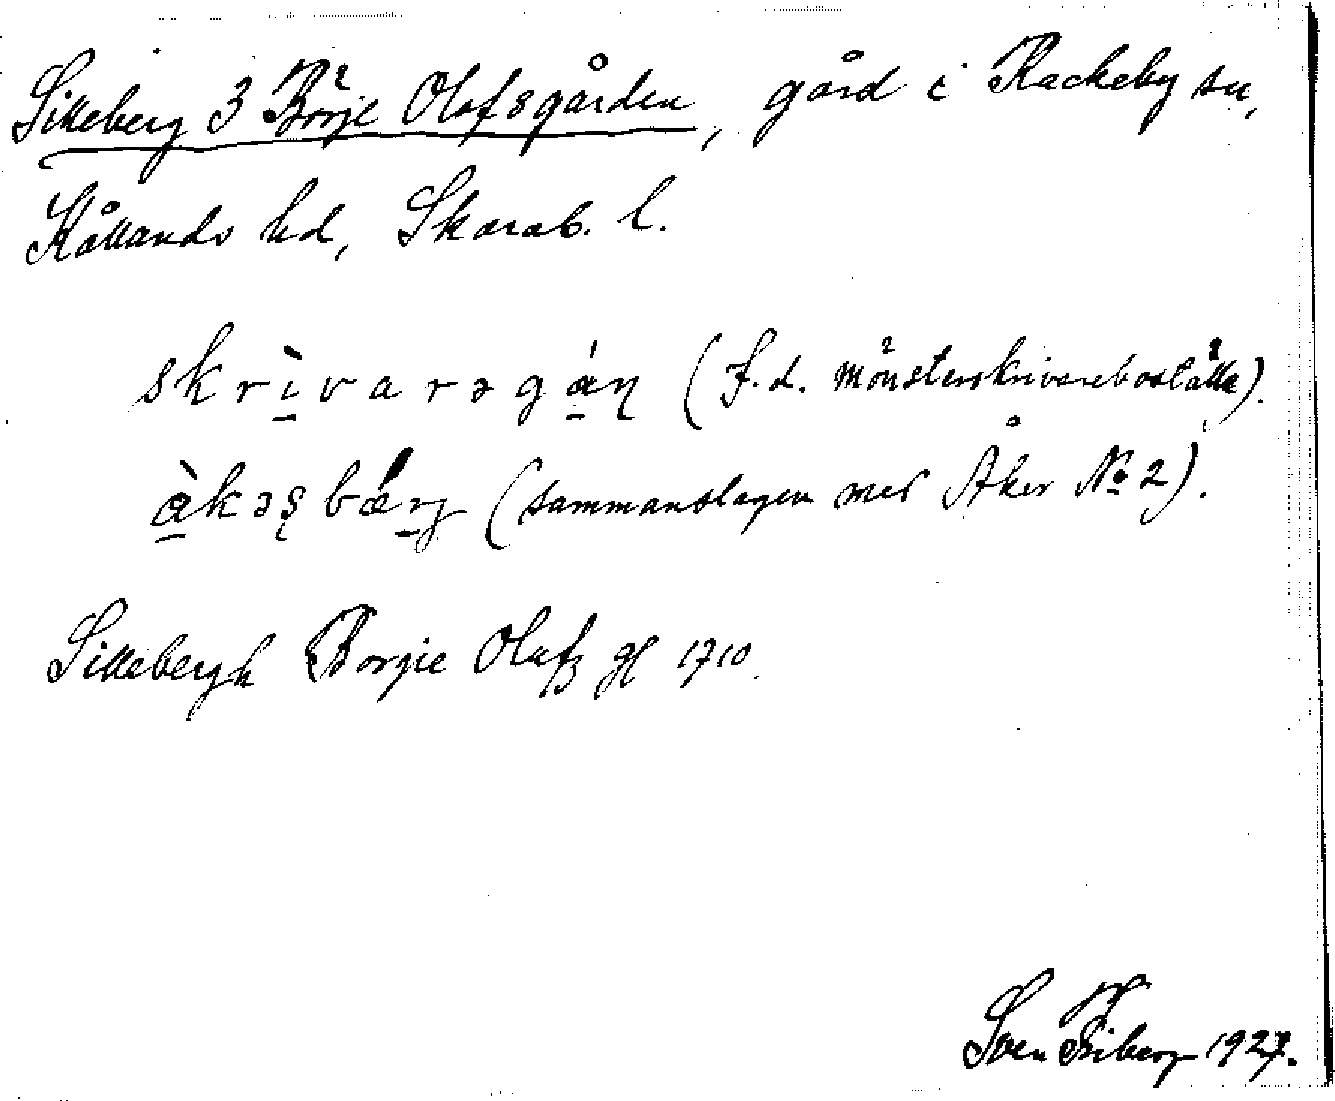 Silleberg 3 Börje Olofsgården, gård i Rackeby sn,
Kållands hd, Skarab. l.
skrìvarəgáɳ (f.d. mönsterskrivareboställe).
àkəʂbǽrj (sammanslagen med Åker No 2).
Sillebergh Borgie Olufz gl 1710.
Sven Friberg 1927.